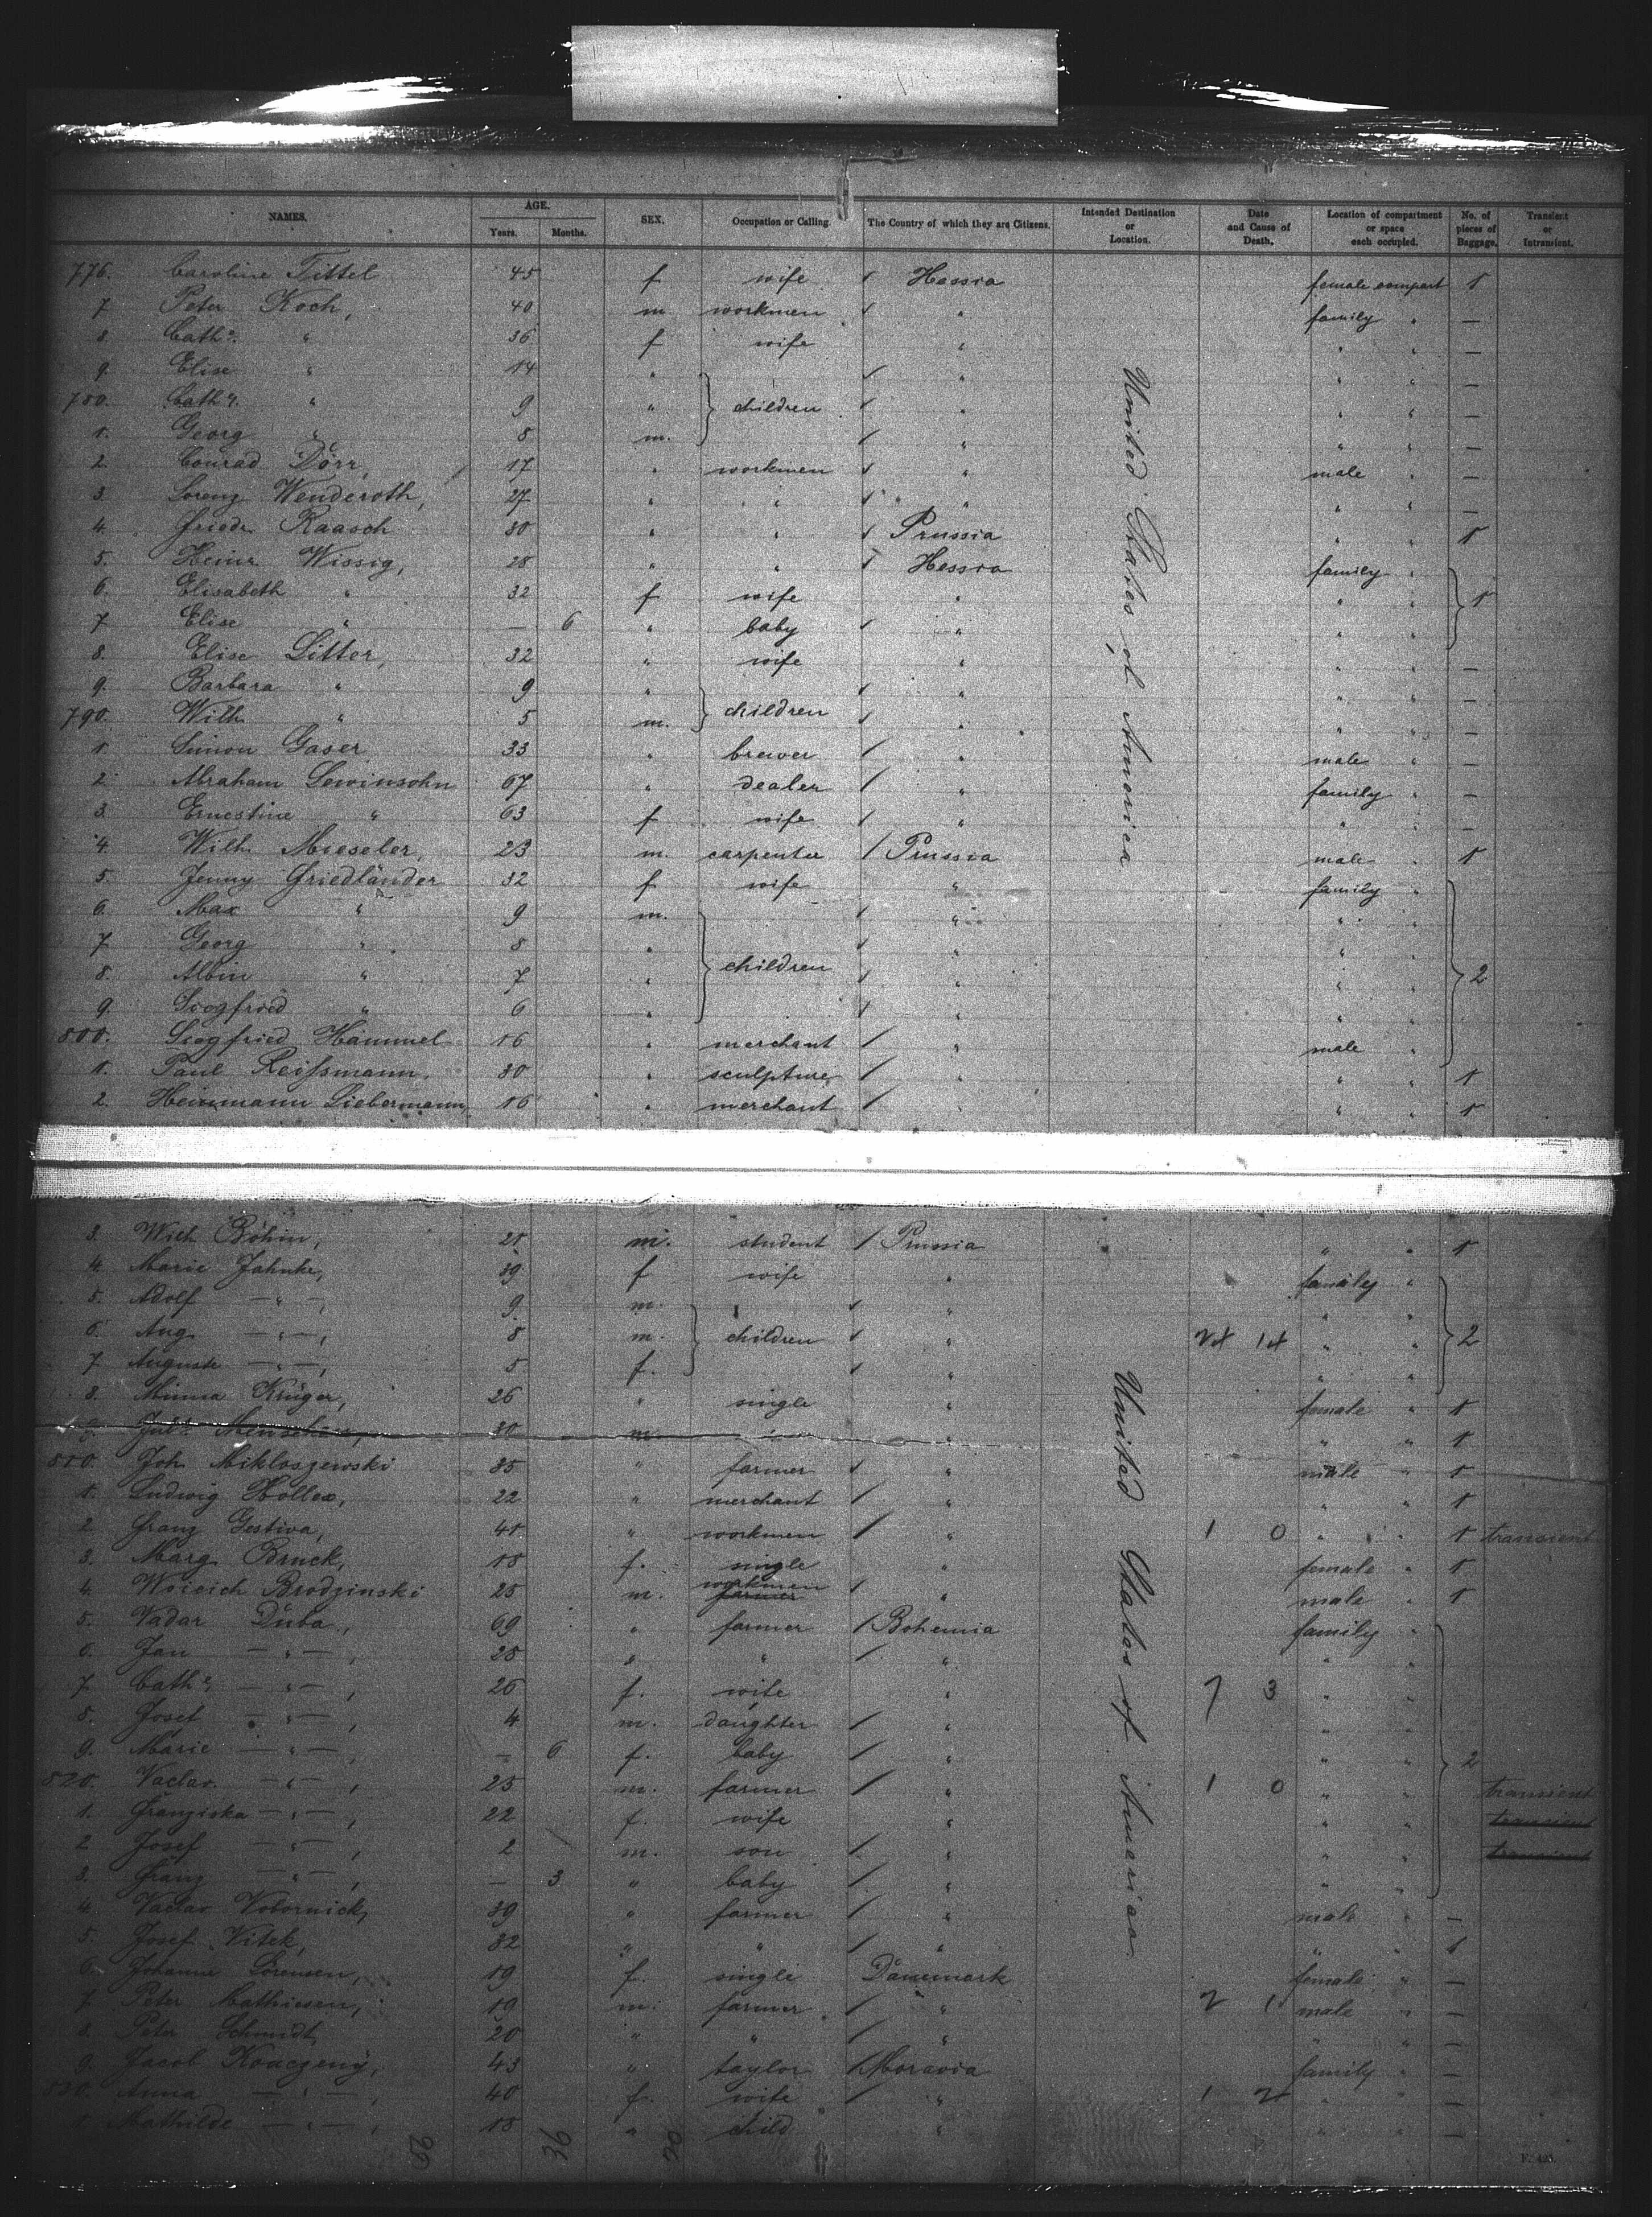 NAMES. AGE. Years. Months. SEX. Occupation or Calling. The Country of which they are Citizens. Intended Destination or Location. Date and Cause of Death. Location of compartment or space each occupied. No. of pieces of Baggage. Transient or Intransient.
776. Caroline Tittel 45 f wife Hessia female compart 1
7 Peter Koch, 40 m workmen " family " —
8. Cath. " 36 f wife " " " —
9. Elise " 14 " " " " —
780. Cath. " 9 " children " " " —
1. Georg " 8 m. " " " —
2. Conrad Dörr, 17 " workmen " male " —
3. Lorenz Wenderoth, 27 " " " " " —
4. Friedr. Raasch 30 " " Prussia " " 1
5. Heinr Wissig, 28 " " Hessia family "
6. Elisabeth " 32 f wife " " " 1
7 Elise " — 6 " baby " " "
8. Elise Litter, 32 " wife " " " —
9. Barbara " 9 " " " " —
790. Wilh. " 5 m. children " " " —
1. Simon Gaser 33 " brewer " male " —
2. Abraham Lewinsohn 67 " dealer " family " —
3. Ernestine " 63 f wife " " " —
4. Wilh. Mieseler, 23 m. carpenter Prussia male " 1
5. Jenny Friedländer 32 f wife " family "
6. Max " 9 m. " " "
7 Georg " 8 " " " "
8. Albin " 7 " children " " " 2
9. Siegfried " 6 " " " "
800. Siegfried Hammel 16 " merchant " male "
1. Paul Reißmann. 30 " sculpture " " " 1
2. Heinmann Liebermann, 16 " merchant " " " 1
United States of America
3. Wilh Böhm, 21 m. student Prussia " " 1
4. Marie Jahnke, 39 f wife " family "
5. Adolf — " —, 9. m. " " "
6. Aug. — " —, 8 m. children " 24 14 " " 2
7 Auguste — " —, 5 f. " " "
8. Minna Krüger, 26 " single " female " 1
9. 30 m. " " " " 1
810. Joh. Mikloszewski 35 " farmer " male " 1
1. Ludwig Hollex, 22 " merchant " " " 1
2 Franz Gestiva, 41 " workmen " 1 0 " " 1 transient
3. Marg. Bruck, 18 f. single " female " 1
4. Woicich Brodzinski 25 m. workmen farmer " male " 1
5. Vadar Duba, 69 " farmer Bohemia family "
6. Jan — " —, 28 " " " " "
7 Cath. — " —, 26 f. wife " 7 3 " "
8. Josef — " —, 4 m. daughter " " "
9. Marie — " —, — 6 f. baby " " " 2
820. Vaclav. — " —, 25 m. farmer " 1 0 " " transient
1. Franziska — " —, 22 f. wife " " " transient
2 Josef — " —, 2 m. son " " " transient
3. Franz — " —, — 3 " baby " " "
4. Vaclav Vobornick, 39 " farmer " male " —
5. Josef Vitek, 32 " " " " " 1
6. Johanne Sörensen, 19 f. single Dänemark female " —
7. Peter Mathiesen, 19 m. farmer " 2 1 male " —
8. Peter Schmidt, 20 " " " " " —
9. Jacob Koaczeny, 43 " taylor Moravia family " —
830. Anna — " —, 40 f. wife " 1 2 " " —
1. Mathilde — " —, 18 " child " " " —
United States of America
36 20